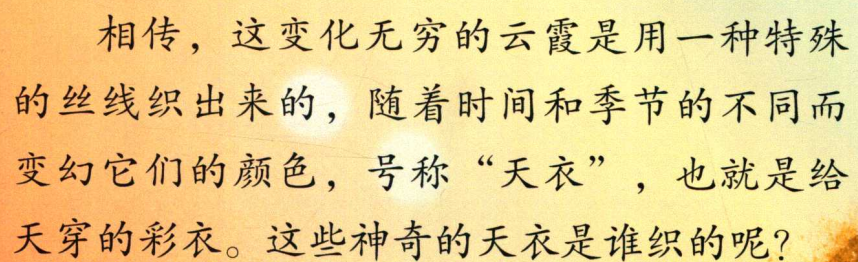 相传，这变化无穷的云霞是用一种特殊
的丝线织出来的，随着时间和季节的不同而
变幻它们的颜色，号称“天衣”，也就是给
天穿的彩衣。这些神奇的天衣是谁织的呢?